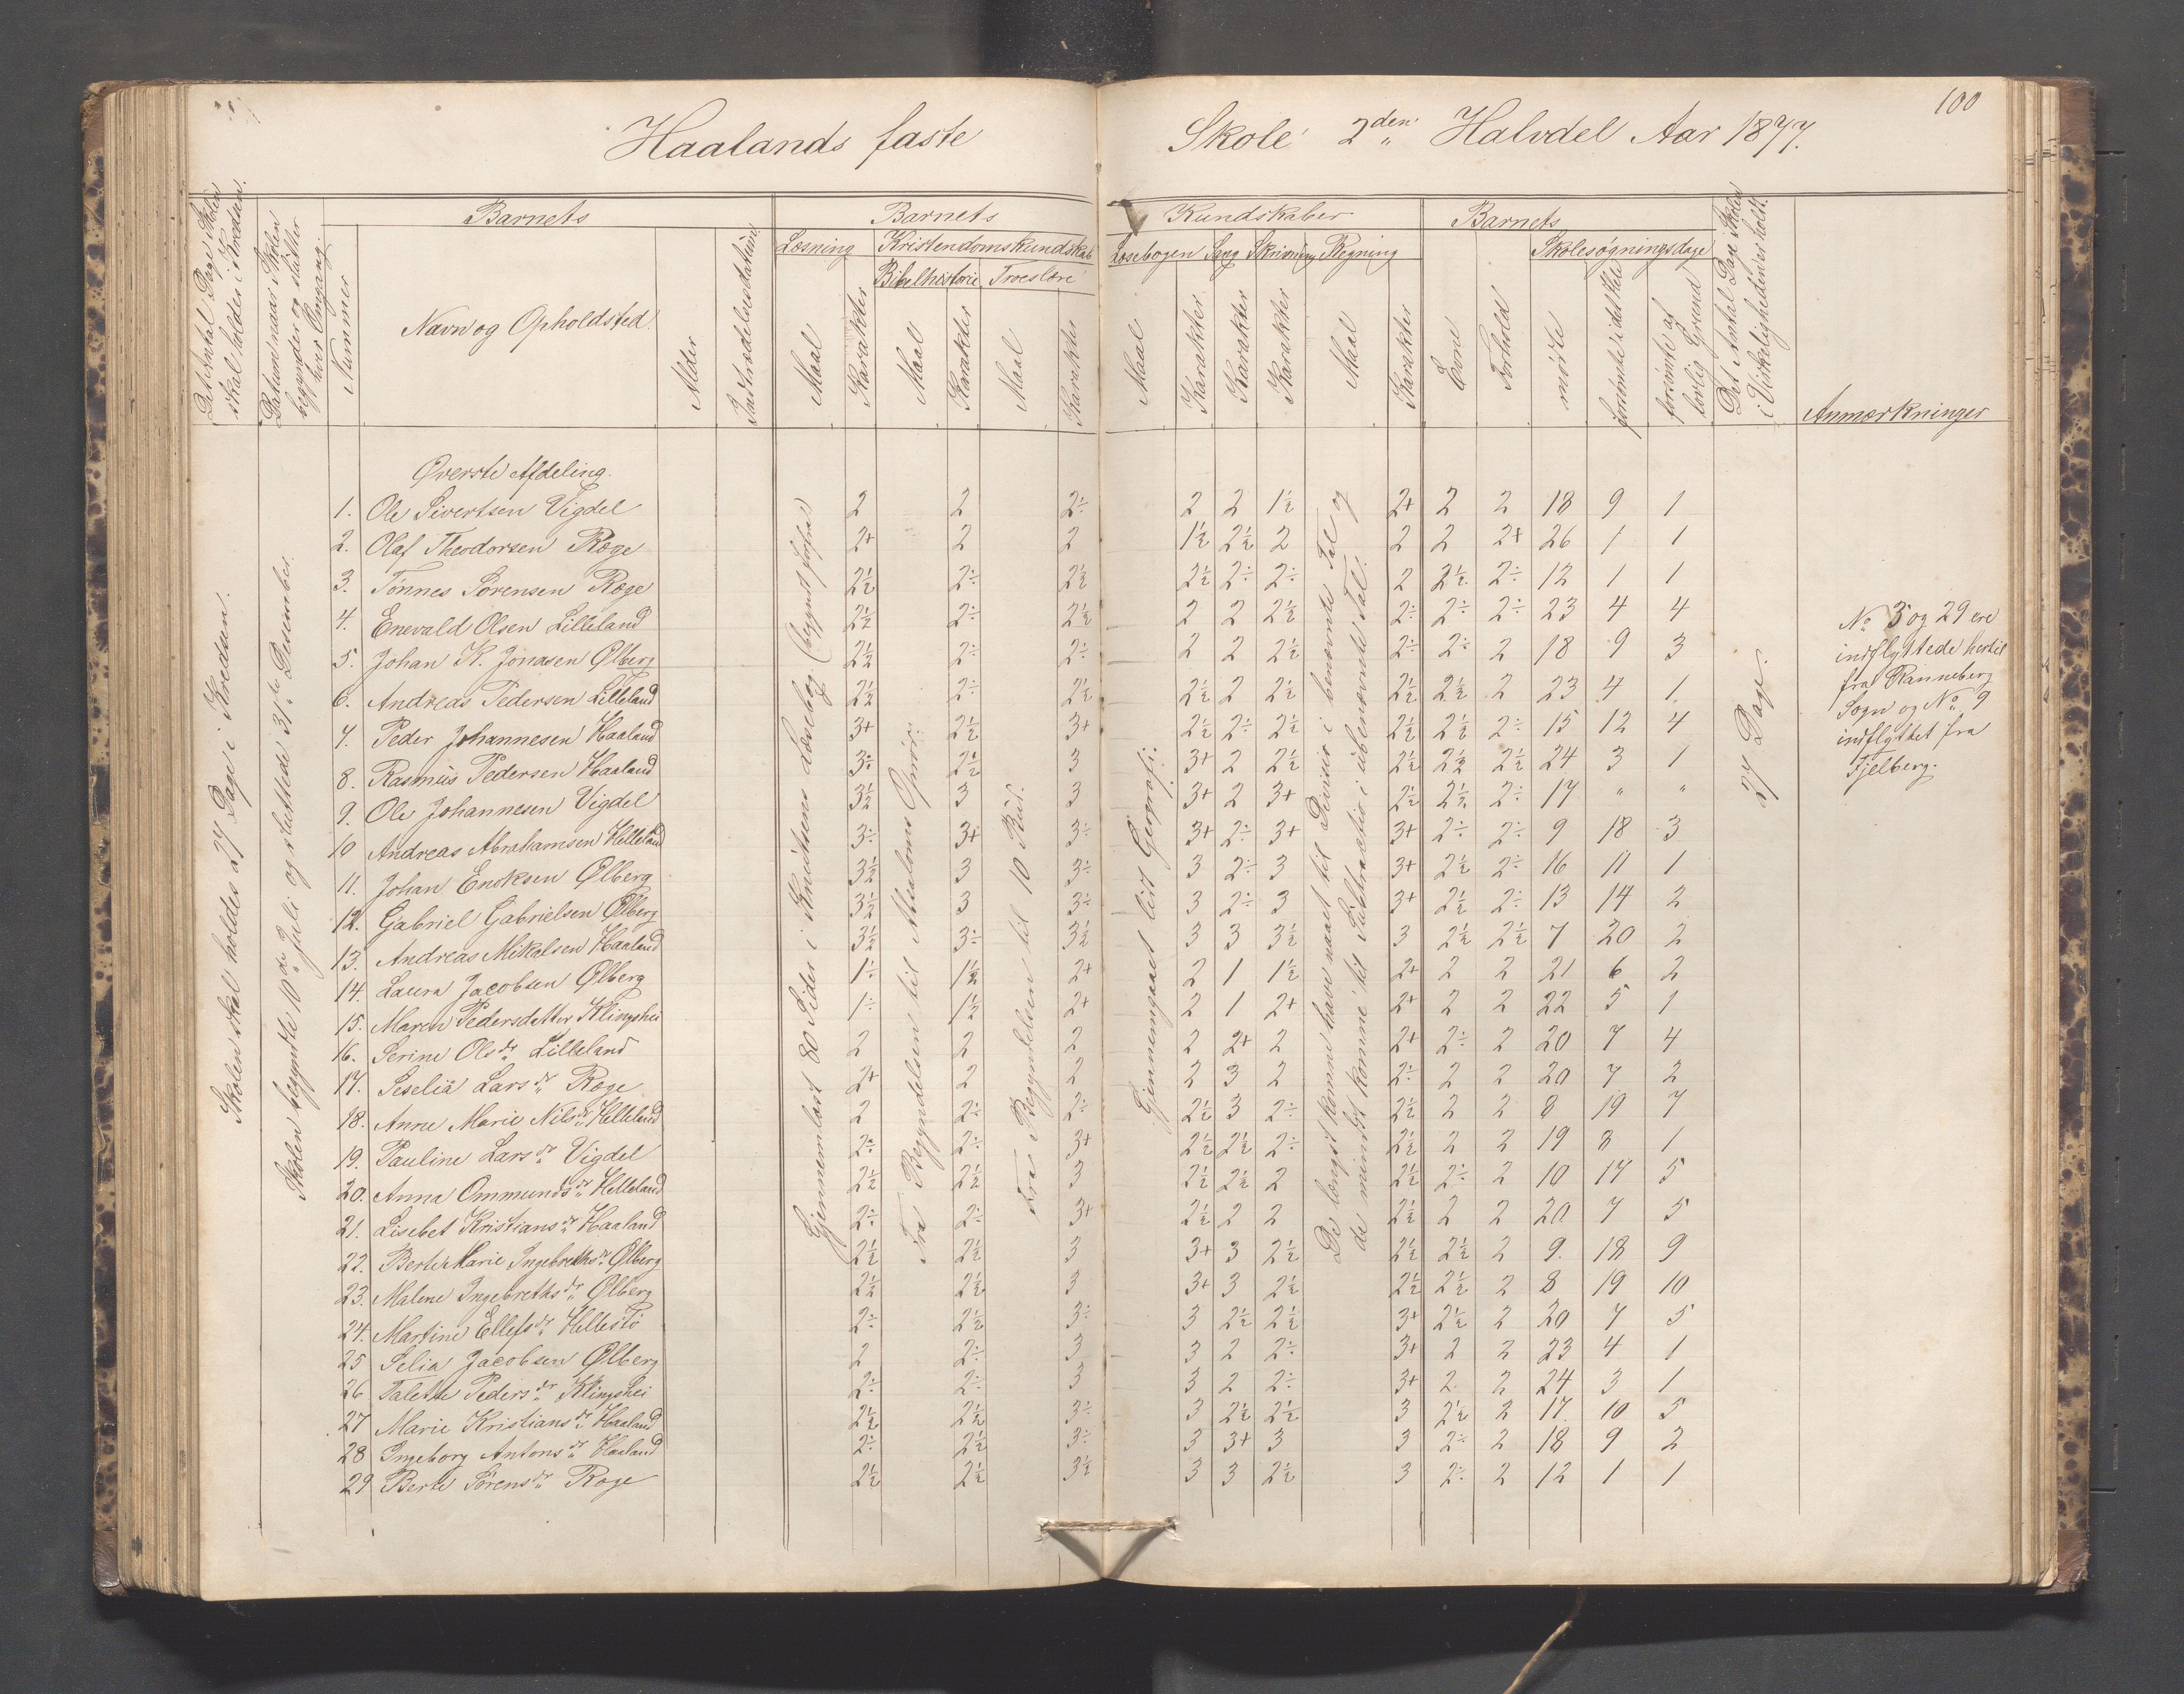 100
Haalands faste Skole 2den Halvdel Aar 1877.
Det Antal Dage Skolen skal holdes i Kredsen.
Datum naar Skolen begynder og slutter hver Omgang.
Nummer
Barnets
Navn og Opholdsted.
Alder
Indtrædelsesdatum.
Barnets Kundskaber
Læsning
Maal
Karakter
Kristendomskundskab
Bibelhistorie
Maal
Karakter
Troeslære
Maal
Karakter
Læsebogen
Maal
Karakter
Sang
Karakter
Skrivning
Karakter
Regning
Maal
Karakter
Barnets
Evne
Forhold
Skolesøgningsdage
mødte
forsømte i det Hele
forsømte af lovlig Grund
Det Antal Dage Skolen i Virkeligheden er holdt.
Anmærkninger
Skolen skal holdes 27 Dage i Kredsen.
Skolen begyndte 10de Juli og sluttede 31te Desember.
Gjennemlæst 80 Sider i Knudsens Læsebog
Fra Begyndelsen til Absaloms Oprør.
Fra Begyndelsen til 10 Bud.
Gjennemgaaet lidt Geografi.
De længst komne have naaet til Division i benævnte Tal og
de mindst komne til Subtraction i ubenævnte Tal.
27 Dage.
Øverste Afdeling.
1. Ole Sivertsen Vigdel 2 2 2÷ 2 2 1½ 2+ 2 2 18 9 1
2. Olaf Theodorsen Røge 2+ 2 2 1½ 2½ 2 2 2 2+ 26 1 1
3. Tønnes Sørensen Røge 2½ 2÷ 2½ 2½ 2÷ 2÷ 2 2½ 2÷ 12 1 1
4. Enevald Olsen Lilleland 2½ 2÷ 2½ 2 2 2½ 2÷ 2÷ 2÷ 23 4 4
5. Johan K. Jonasen Ølberg 2½ 2÷ 2÷ 2 2 2½ 2÷ 2÷ 2 18 9 3
6. Andreas Pedersen Lilleland 2½ 2÷ 2½ 2½ 2 2½ 2½ 2½ 2 23 4 1
7. Peder Johannesen Haaland 3+ 2½ 3+ 2½ 2÷ 2½ 2½ 2½ 2÷ 15 12 4
8. Rasmus Pedersen Haaland 3÷ 2½ 3 3+ 2 2½ 2½ 2½ 2½ 24 3 1
9. Ole Johannesen Vigdel 3½ 3 3 3+ 2 3+ 2½ 2½ 2÷ 17 " "
10 Andreas Abrahamsen Helleland 3÷ 3+ 3÷ 3+ 2÷ 3+ 3+ 2÷ 2÷ 9 18 3
11. Johan Enoksen Ølberg 3½ 3 3÷ 3 2÷ 3 3+ 2½ 2÷ 16 11 1
12. Gabriel Gabrielsen Ølberg 3½ 3 3÷ 3 2÷ 3 3+ 2½ 2÷ 13 14 2
13. Andreas Mikalsen Haaland 3½ 3÷ 3½ 3 3 3½ 3 2½ 2½ 7 20 2
14. Laura Jacobsen Ølberg 1÷ 1½ 2+ 2 1 1½ 2+ 2 2 21 6 2
15. Maren Pedersdatter Klingshei 1÷ 1½ 2+ 2 1 2+ 2+ 2 2 22 5 1
16. Serine Olsdr Lilleland 2 2 2 2 2+ 2 2+ 2÷ 2 20 7 4
17. Seselia Larsdr Røge 2+ 2 2 2 3 2 2÷ 2 2 20 7 2
18. Anne Marie Nilsdr Helleland 2 2÷ 2÷ 2½ 3 2÷ 2½ 2 2 8 19 7
19. Pauline Larsdr Vigdel 2÷ 2÷ 3+ 2½ 2½ 2÷ 2½ 2 2 19 8 1
20. Anna Ommundsdr Helleland 2½ 2½ 3 2½ 2½ 2 2½ 2÷ 2 10 17 5
21. Lisebet Kristiansdr Haaland 2÷ 2÷ 3+ 2½ 2 2 2½ 2 2 20 7 5
22. Berte Marie Ingebrethsdr Ølberg 2½ 2½ 3 3+ 3 2½ 2½ 2½ 2 9 18 9
23. Malene Ingebrethsdr Ølberg 2½ 2½ 3 3+ 3 2½ 2½ 2½ 2 8 19 10
24. Martine Ellefsdr Hellestø 2÷ 2½ 3÷ 3 2½ 2½ 3+ 2½ 2 20 7 5
25 Selia Jacobsen Ølberg 2 2÷ 3 3 2 2÷ 3+ 2 2 23 4 1
26 Talette Pedersdr Klingshei 2÷ 2÷ 3 3 2 2÷ 3+ 2 2 24 3 1
27 Marie Kristiansdr Haaland 2½ 2½ 3÷ 3 2½ 2½ 3 2½ 2 17 10 5
28 Ingeborg Antonsdr Haaland 2÷ 2½ 3÷ 3 3+ 3 3 2÷ 2 18 9 2
29 Berte Sørensdr Røge 2½ 2½ 3½ 3 3 2½ 3 2÷ 2 12 1 1
No 3 og 29 ere
indflyttede hertil
fra Ranneberg
Sogn og No 9
indflyttet fra
Fjelberg.